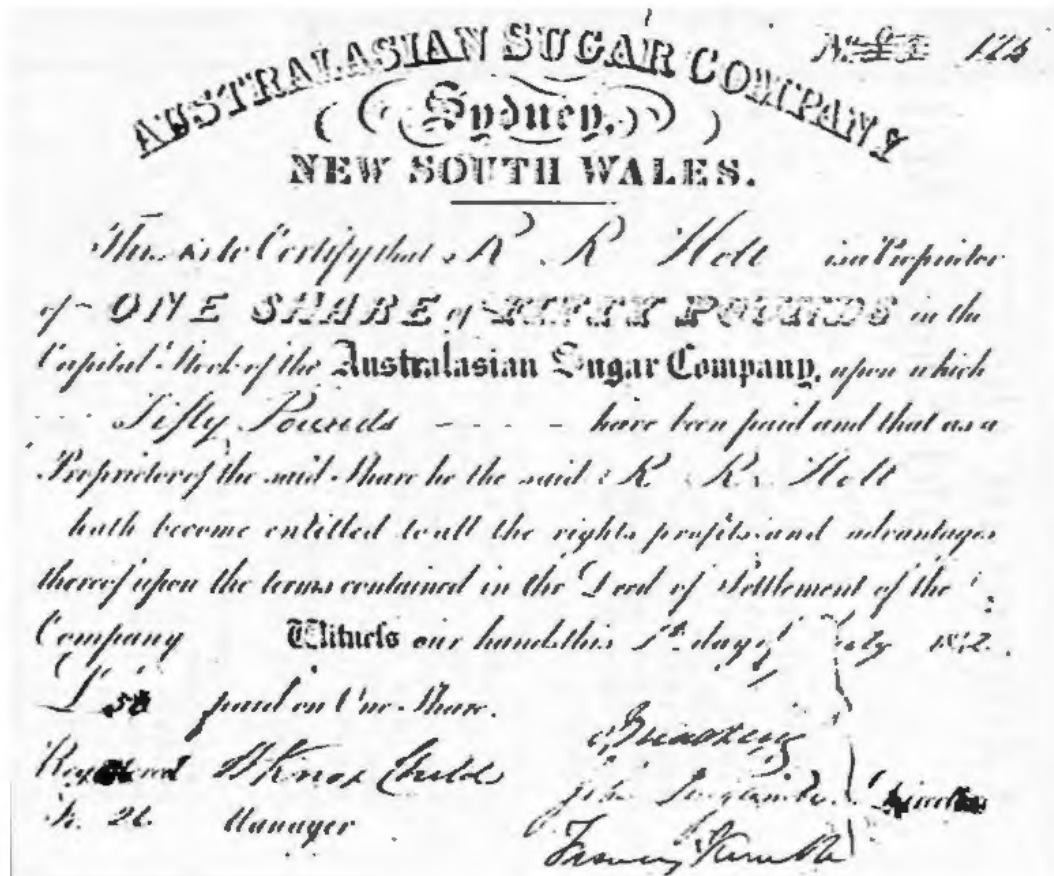 AUSTRALASIAN SUGAR COMPANY
Sydney,
NEW SOUTH WALES.
This is to Certify that R R Holt is a Proprietor
of ONE SHARE of FIFTY POUNDS in the
Capital Stock of the Australasian Sugar Company, upon which
Fifty Pounds - - - - have been paid and that as a
Proprietor of the said Share he the said R R Holt
hath become entitled to all the rights profits and advantages
thereof upon the terms contained in the Deed of Settlement of the
Company Witness our hands this 1st day of July
£50 paid on One Share.
Registered W Knox Child
Manager
John
Francis Kemble
Directors